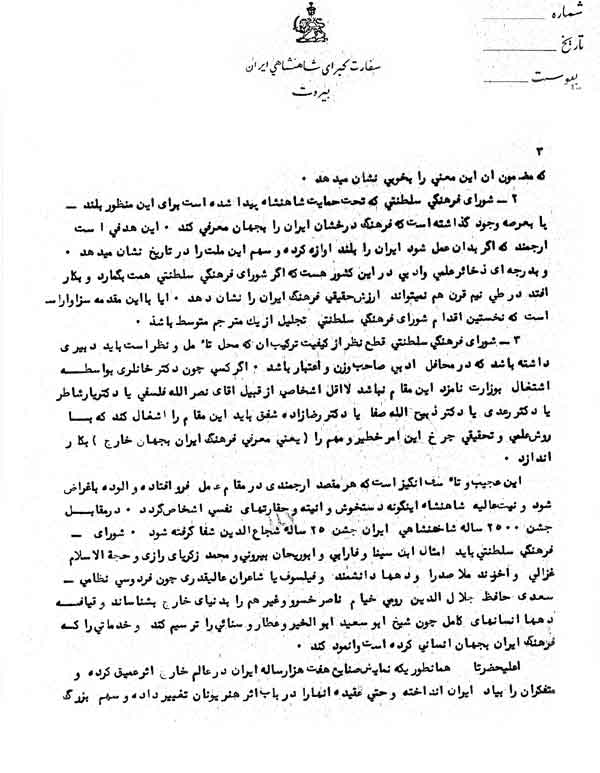 شماره
تاریخ
پیوست
سفارت کبرای شاهنشاهی ایران
بیروت
۳
که مضمون ان این معنی را بخوبی نشان میدهد ۰
۲ ــ شورای فرهنگی سلطنتی که تحت حمایت شاهنشاه پیدا شده است برای این منظور بلند ــ
پا بعرصه وجود گذاشته است که فرهنگ درخشان ایران را بجهان معرفی کند ۰ این هدفی است
ارجمند که اگر بدان عمل شود ایران را بلند اوازه کرده و سهم این ملت را در تاریخ نشان میدهد ۰
و بدرجه ای ذخائر علمی وادبی در این کشور هست که اگر شورای فرهنگی سلطنتی همت بگمارد و بکار
افتد در طی نیم قرن هم نمیتواند ارزش حقیقی فرهنگ ایران را نشان دهد ۰ ایا با این مقدمه سزاوار است
است که نخستین اقدام شورای فرهنگی سلطنتی تجلیل از یک مترجم متوسط باشد ۰
۳ ــ شورای فرهنگی سلطنتی قطع نظر از کیفیت ترکیب ان که محل تاٴمل و نظر است باید دبیری
داشته باشد که در محافل ادبی صاحب وزن و اعتبار باشد ۰ اگر کسی چون دکتر خانلری بواسطه
اشتغال بوزارت نامزد این مقام نباشد لااقل اشخاصی از قبیل اقای نصرالله فلسفی یا دکتر یارشاطر
یا دکتر رعدی یا دکتر ذبیح الله صفا یا دکتر رضازاده شفق باید این مقام را اشغال کند که با
روش علمی و تحقیقی چرخ این امر خطیر و مهم را ( یعنی معرفی فرهنگ ایران بجهان خارج ) بکار
اندازد ۰
این عجیب و تاٴسف انگیز است که هر مقصد ارجمندی در مقام عمل فرو افتاده و الوده باغراض
شود و نیت عالیه شاهنشاه اینگونه دستخوش و انیته و حقارتهای نفسی اشخاص گردد ۰ در مقابل
جشن ۲۵۰۰ ساله شاهنشاهی ایران جشن ۲۵ ساله شجاع الدین شفا گرفته شود ۰ شورای ــ
فرهنگی سلطنتی باید امثال ابن سینا و فارابی و ابوریحان بیرونی و محمد زکریای رازی و حجة الاسلام
غزالی و اخوند ملاصدرا و دهها دانشمند و فیلسوف یا شاعران عالیقدری چون فردوسی نظامی ــ
سعدی حافظ جلال الدین رومی خیام ناصر خسرو و غیر هم را بدنیای خارج بشناساند و قیافه
دهها انسانهای کامل چون شیخ ابو سعید ابو الخیر و عطار و سنائی را ترسیم کند و خدماتی را که
فرهنگ ایران بجهان انسانی کرده است وانمود کند ۰
اعلیحضرتا همانطوریکه نمایش صنایع هفت هزار ساله ایران در عالم خارج اثر عمیق کرده و
متفکران را بیاد ایران انداخته و حتی عقیده انها را در باب اثر هنر یونان تغییر داده و سهم بزرگ